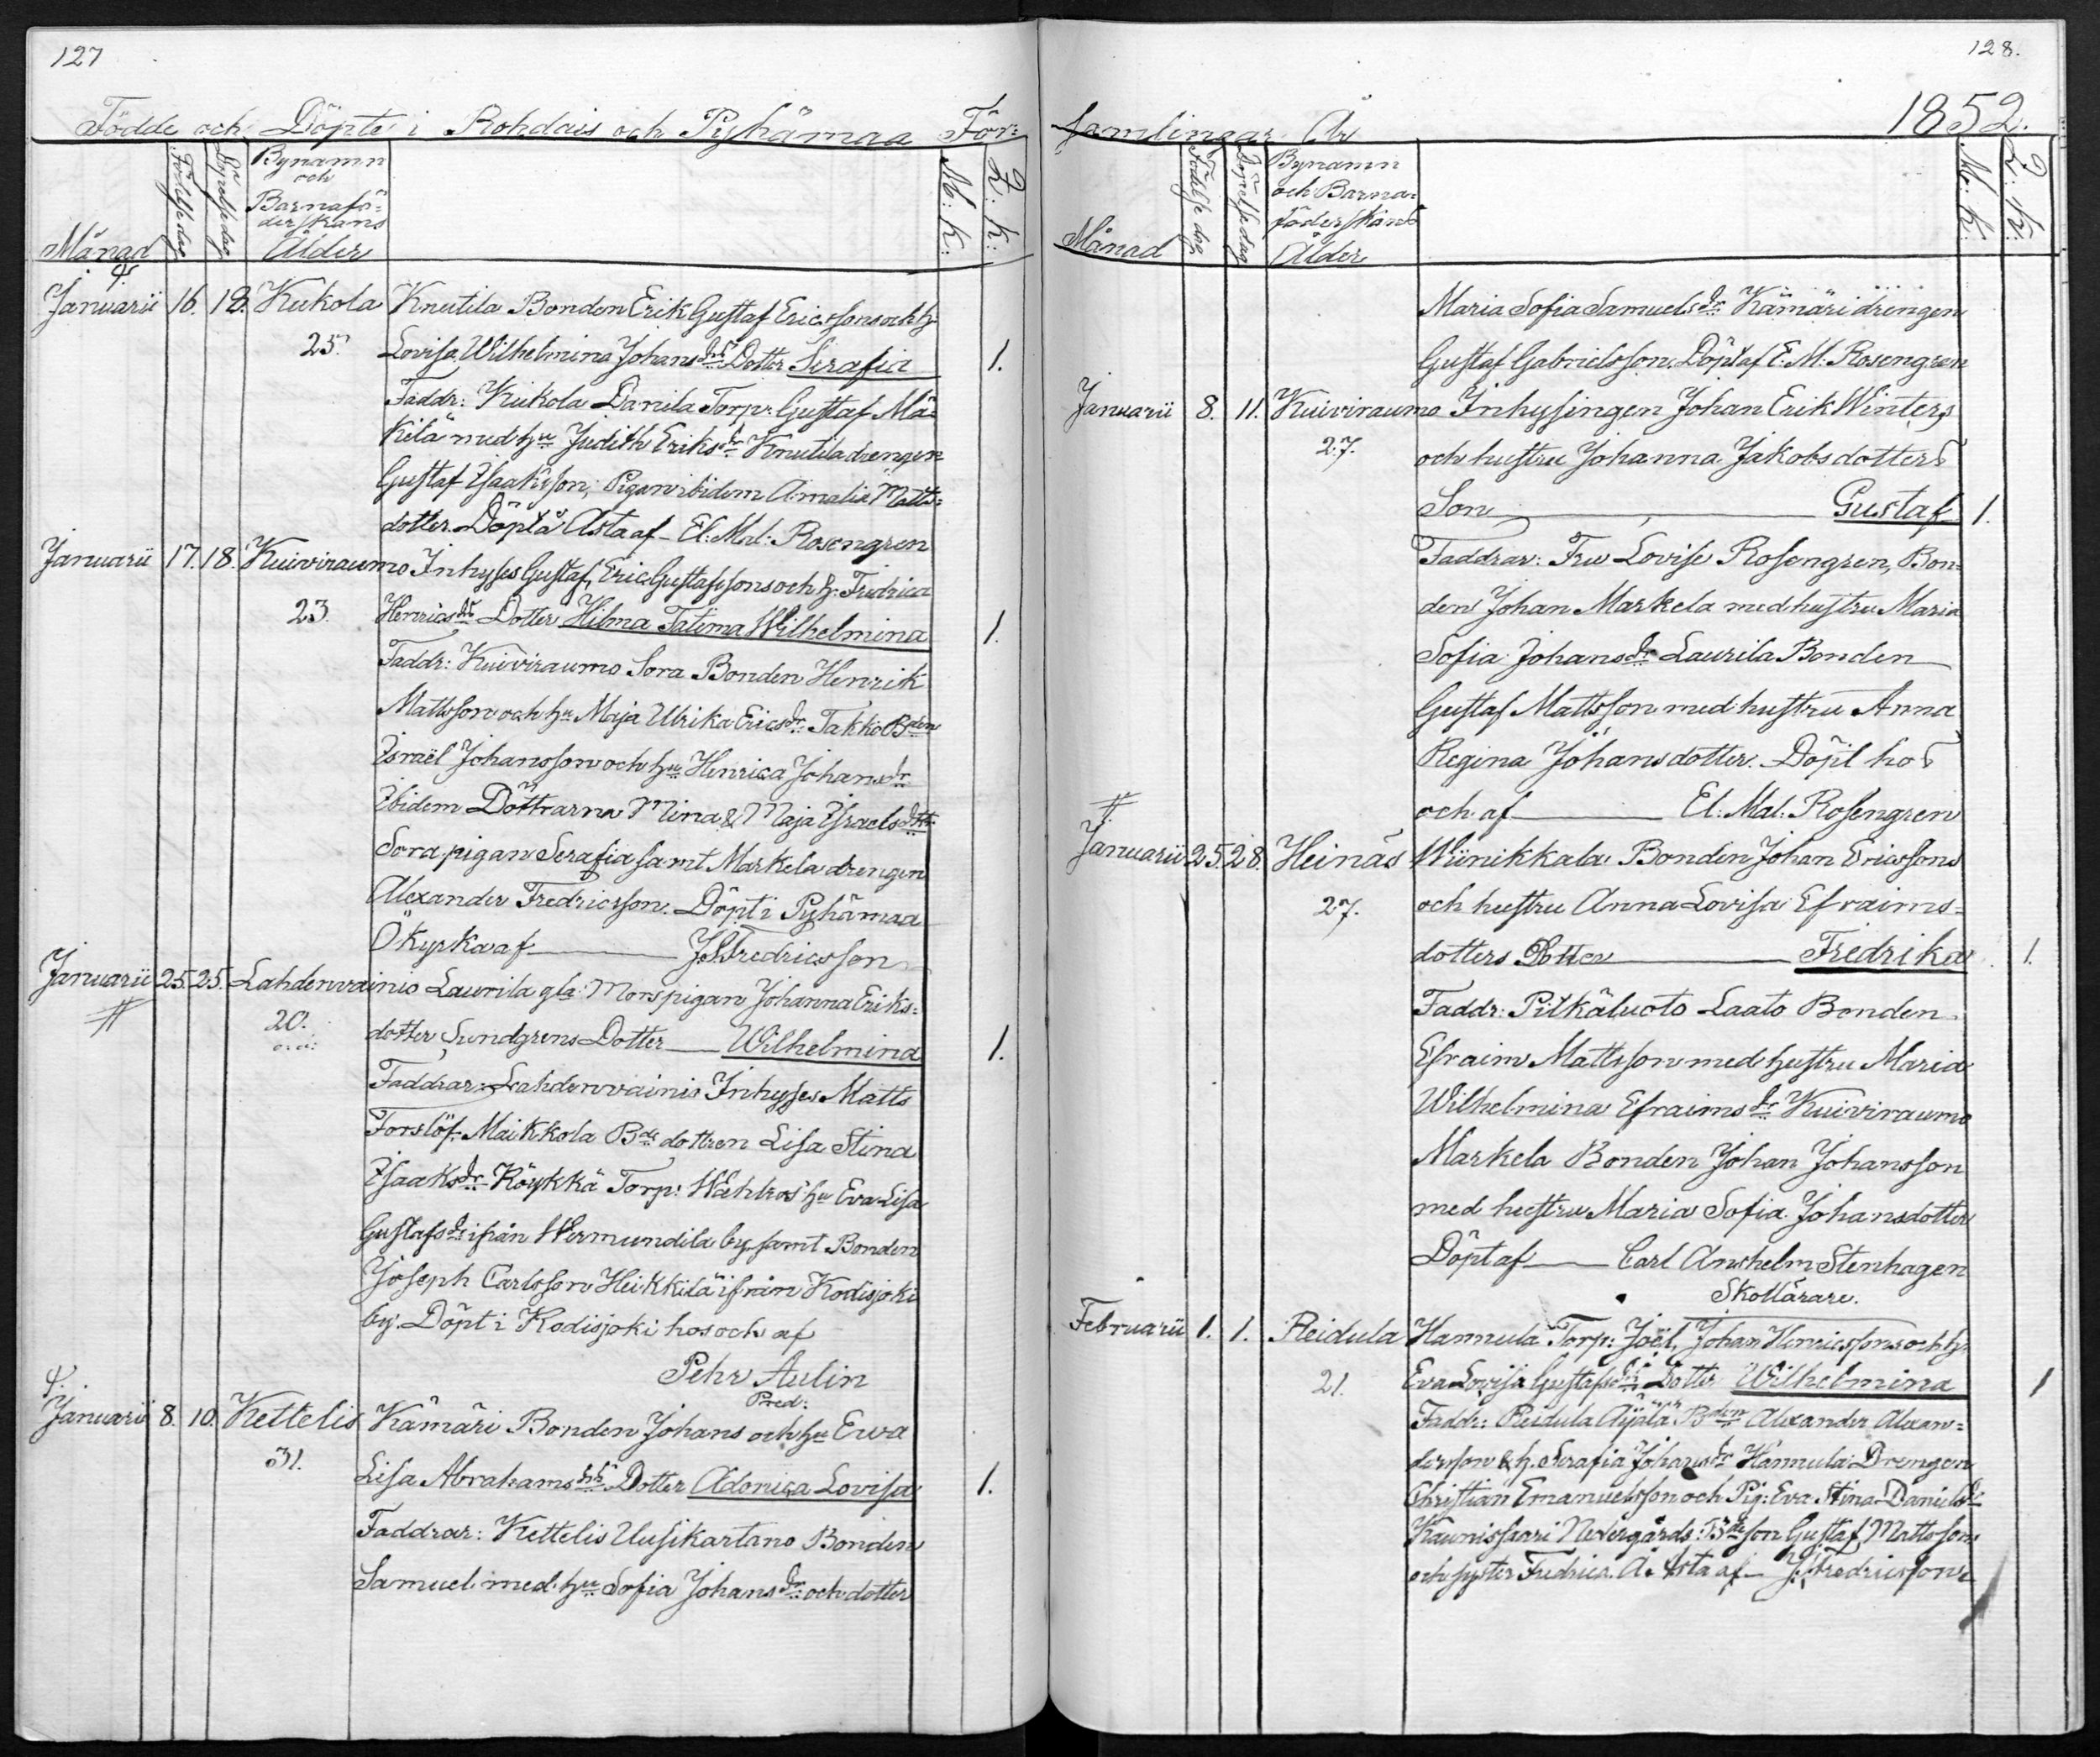 127
Födde och Döpte i Rohdais och Pyhämaa För:
Månad
Födelsedag
Döpelsedag
Bynamn
och
Barnafö-
derskans
Ålder
M: K:
Q: K:
Januarii 16. 18. Kukola Knutila Bonden Erik Gustaf Ericssons och h.
25. Lovisa Wilhelmina Johansdrs Dotter Serafia 1.
Faddr: Kukola Danila Torp: Gustaf Mä-
kilä med hu Judith Eriksdr Knutila drengen
Gustaf Isaksson, Pigan ibidem Amalia Matts-
dotter. Döpt å Asta af El: Mal: Rosengren
Januarii 17. 18. Kuiviraumo Inhyses Gustaf, Eric Gustafssons och h. Fredrica
23. Henricsdrs Dotter Hilma Talima Wilhelmina 1.
Faddr: Kuiviraumo Sora Bonden Henrik
Mattsson och hu Maja Ulrika Ericsdr Takko Bden
Israël Johansson och hu Henrica Johansdr
Ibidem Döttrarna Mina & Maja Israelsdttr
Sora pigan Serafia samt Markela drengen
Alexander Fredricsson. Döpt i Pyhämaa
Ökyrka af J. Fredricsson
Januarii 25. 25. Lahdenvainio Laurila gla: Mors pigan Johanna Eriks-
20. dotter Lundgrens Dotter Wilhelmina 1.
Faddrar: Lahdenvainio Inhyses Matts
Forslöf. Maikkola Bds dottren Lisa Stina
Isaaksdr Köykkä Torp: Wahlros hu Eva Lisa
Gustafsdr ifrån Wermundila by, samt Bonden
Joseph Carlsson Heikkilä ifrån Kodisjoki
by. Döpt i Kodisjoki hos och af
Pehr Aulin
Pred:
Januarii 8. 10. Kettelis Kämäri Bonden Johans och hu Ewa
31. Lisa Abrahamsdrs Dotter Adonica Lovisa 1.
Faddrar: Kettelis Uusikartano Bonden
Samuel med hu Sofia Johansdr och dotter
128.
Samlingar År 1852.
Månad
Födelse dag
Döpelse dag
Bynamn
och Barna-
föderskans
Ålder
M: K:
Q: K:
Maria Sofia Samuelsdr Kämäri drengen
Gustaf Gabrielsson. Döpt af E. M. Rosengren
Januarii 8. 11. Kuiviraumo Inhysingen Johan Erik Winters
27. och hustru Johanna Jakobsdotters
Son Gustaf 1.
Faddrar: Fru Lovise Rosengren, Bon-
den Johan Markela med hustru Maria
Sofia Johansdr Laurila Bonden
Gustaf Mattsson med hustru Anna
Regina Johansdotter. Döpt hos
och af El: Mal: Rosengren
Januarii 25. 28. Heinäs Wiinikkala Bonden Johan Ericssons
27. och hustru Anna Lovisa Efraims-
dotters Dotter Fredrika 1.
Faddr: Pitkäluoto Laato Bonden
Efraim Mattsson med hustru Maria
Wilhelmina Efraimsdr Kuiviraumo
Markela Bonden Johan Johansson
med hustru Maria Sofia Johansdotter
Döpt af Carl Anshelm Stenhagen
Skollärare.
Februarii 1. 1. Reidula Hannula Torp: Joël, Johan Henricssons och h.
21. Eva Lovisa Gustafsdrs Dotter Wilhelmina 1
Faddr: Reidula Äyälä Bden Alexander Alexan-
dersson & h. Serafia Johansdr Hannula Drengen
Christian Emanuelsson och Pig: Eva Stina Danielsdr
Kaunissaari Nedergårds Bdeson Gustaf Mattsson
och syster Fredrica. Å Asta af J. Fredricsson